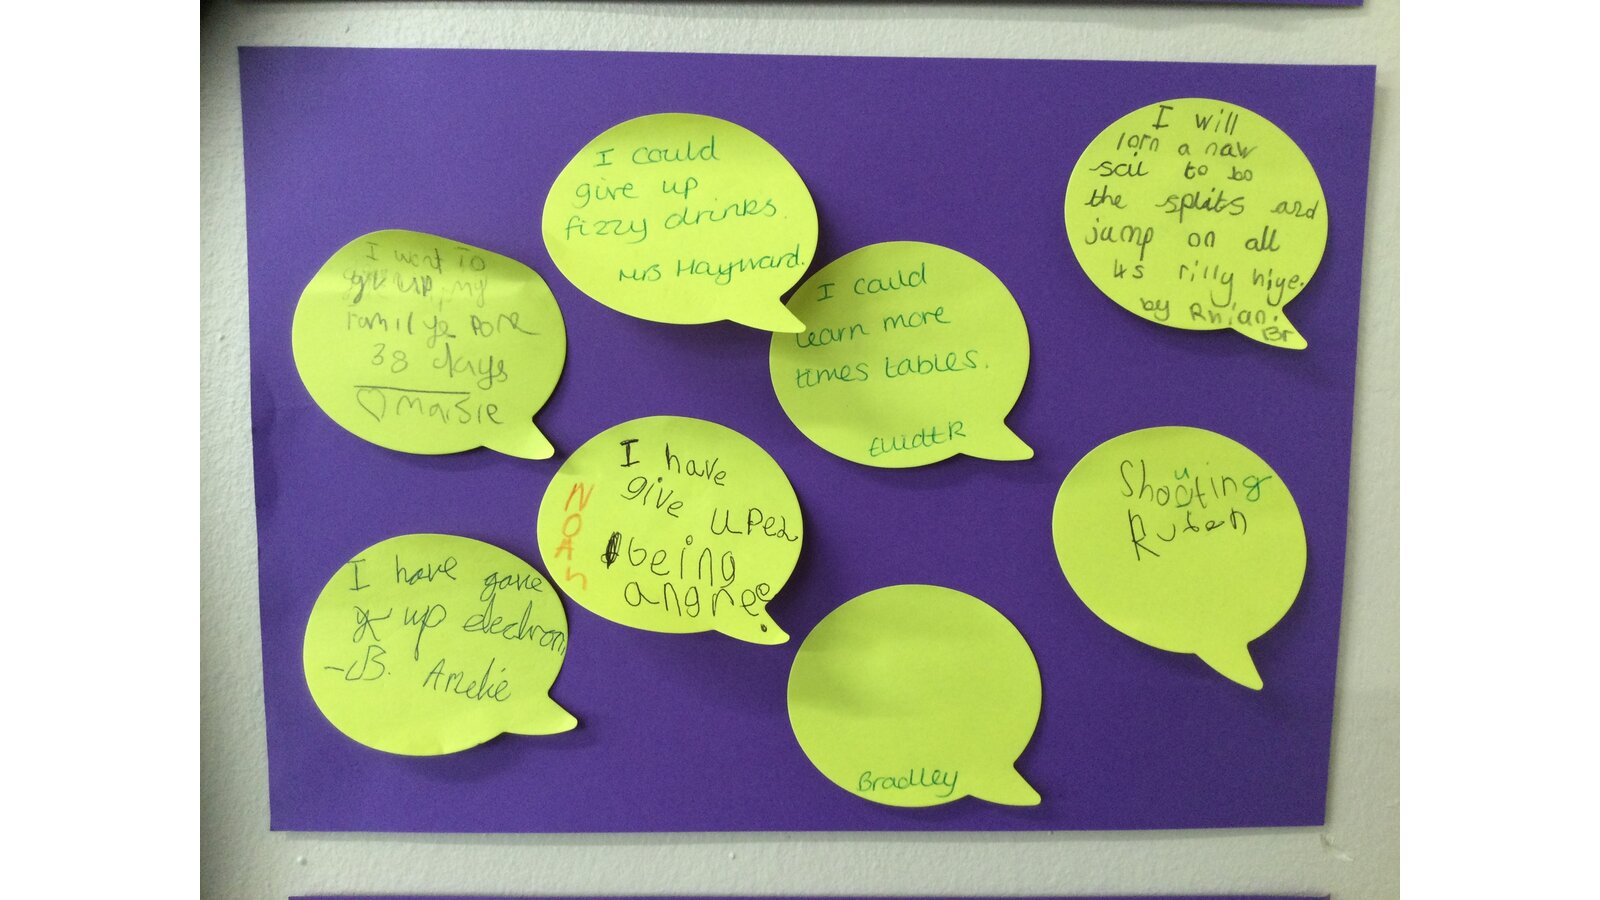 I could
give up
fizzy drinks.
Mrs Hayward.
I will
lorn a naw
scil to bo
the splits and
jump on all
4s rilly hiye.
by Rhian.
Br
I want To
giv up my
family
38 days
Maisie
I could
learn more
times tables.
I have
give uped
being
angree
NOAh
Shouting
Ruben
I have gave
up electron
Amelie
Bradley